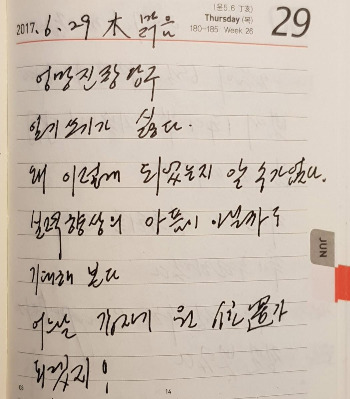 (음5.6 丁亥)
2017. 6. 29 木 맑음 Thursday (목) 29
180-185 Week 26
엉망진창 당구
일기 쓰기가 싫다.
왜 이렇게 되었는지 알 수가 없다.
실력향상의 아픔이 아닐까도
JUN
기대해 본다
어느날 갑자기 원 位置가
되겠지!
14